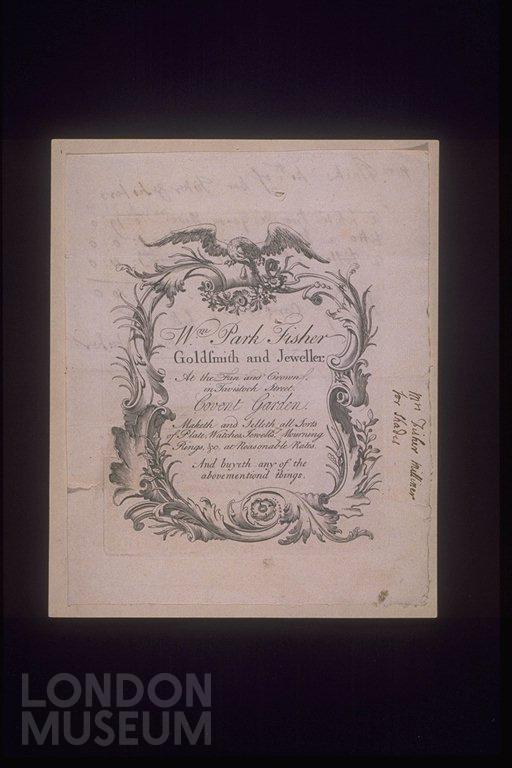 Wm Park Fisher
Goldſmith and Jeweller.
At the Fan and Crown,
in Tavistock Street.
Covent Garden.
Maketh and Selleth all Sorts
of Plate, Watches, Jewells, Mourning
Rings, &c. at Reasonable Rates.
And buyeth any of the
abovementiond things.
Mrs Fisher milliner
for Shades
LONDON
MUSEUM